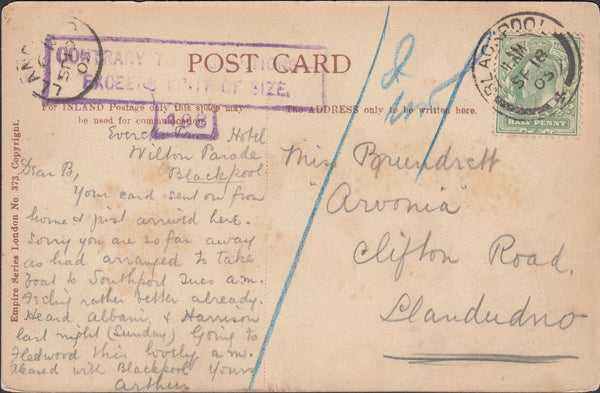 POST CARD
CONTRARY TO
EXCEEDS LIMIT OF SIZE.
For INLAND Postage only this space may
be used for communication.
The ADDRESS only to be written here.
BLACKPOOL
SP 18
05
HALF PENNY
Hotel
Wilton Parade
Blackpool
Dear B,
Your card sent on from
home & just arrived here.
Sorry you are so far away
as had arranged to take
boat to Southport Tues a.m.
Feeling rather better already.
Heard Albani, & Harrison
last night (Sunday) Going to
Fleetwood this lovely a.m.
Pleased with Blackpool Yours
Arthur
Miss Brundrett
"Arvonia"
Clifton Road.
Llandudno
Empire Series London No. 373, Copyright.